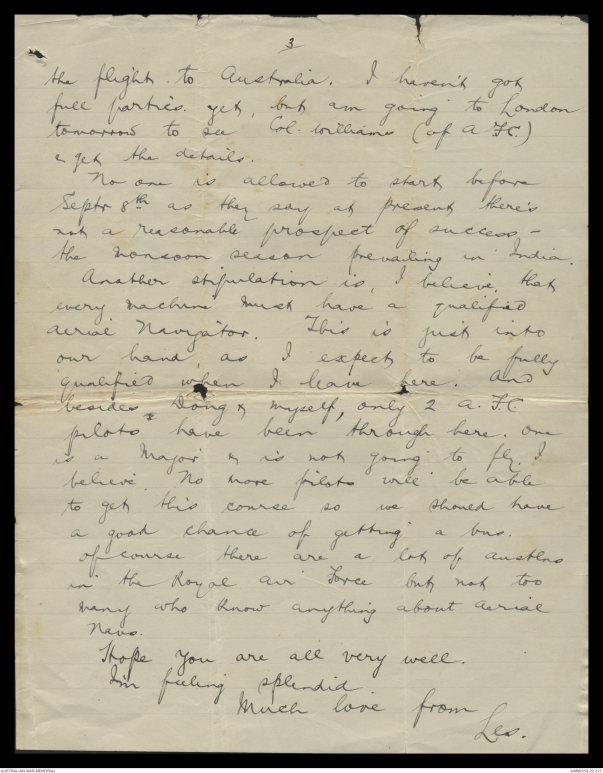 3
the flight to Australia. I haven't got
full parties. yet, but am going to London
tomorrow to see Col. Williams (of A.F.C.)
& get the details.
No one is allowed to start before
Septr 8th as they say at present there's
not a reasonable prospect of success -
the monsoon season prevailing in India.
Another stipulation is, I believe, that
every machine must have a qualified
aerial Navigator. This is just into
our hand, as I expect to be fully
qualified when I leave here. And
besides Doug & myself, only 2 A.F.C.
pilots have been through here. One
is a Major & is not going to fly, I
believe. No more pilots will be able
to get this course so we should have
a good chance of getting a bus.
Of course there are a lot of Austlns
in the Royal Air Force but not too
many who know anything about aerial
Navo.
Hope you are all very well.
I'm feeling splendid
Much love from
Les.
AUSTRALIAN WAR MEMORIAL